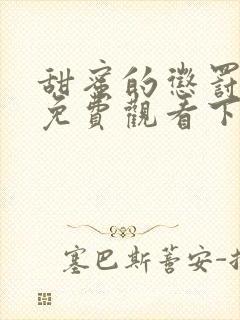 甜蜜的懲罰
免費觀看下
塞巴斯蒂安-